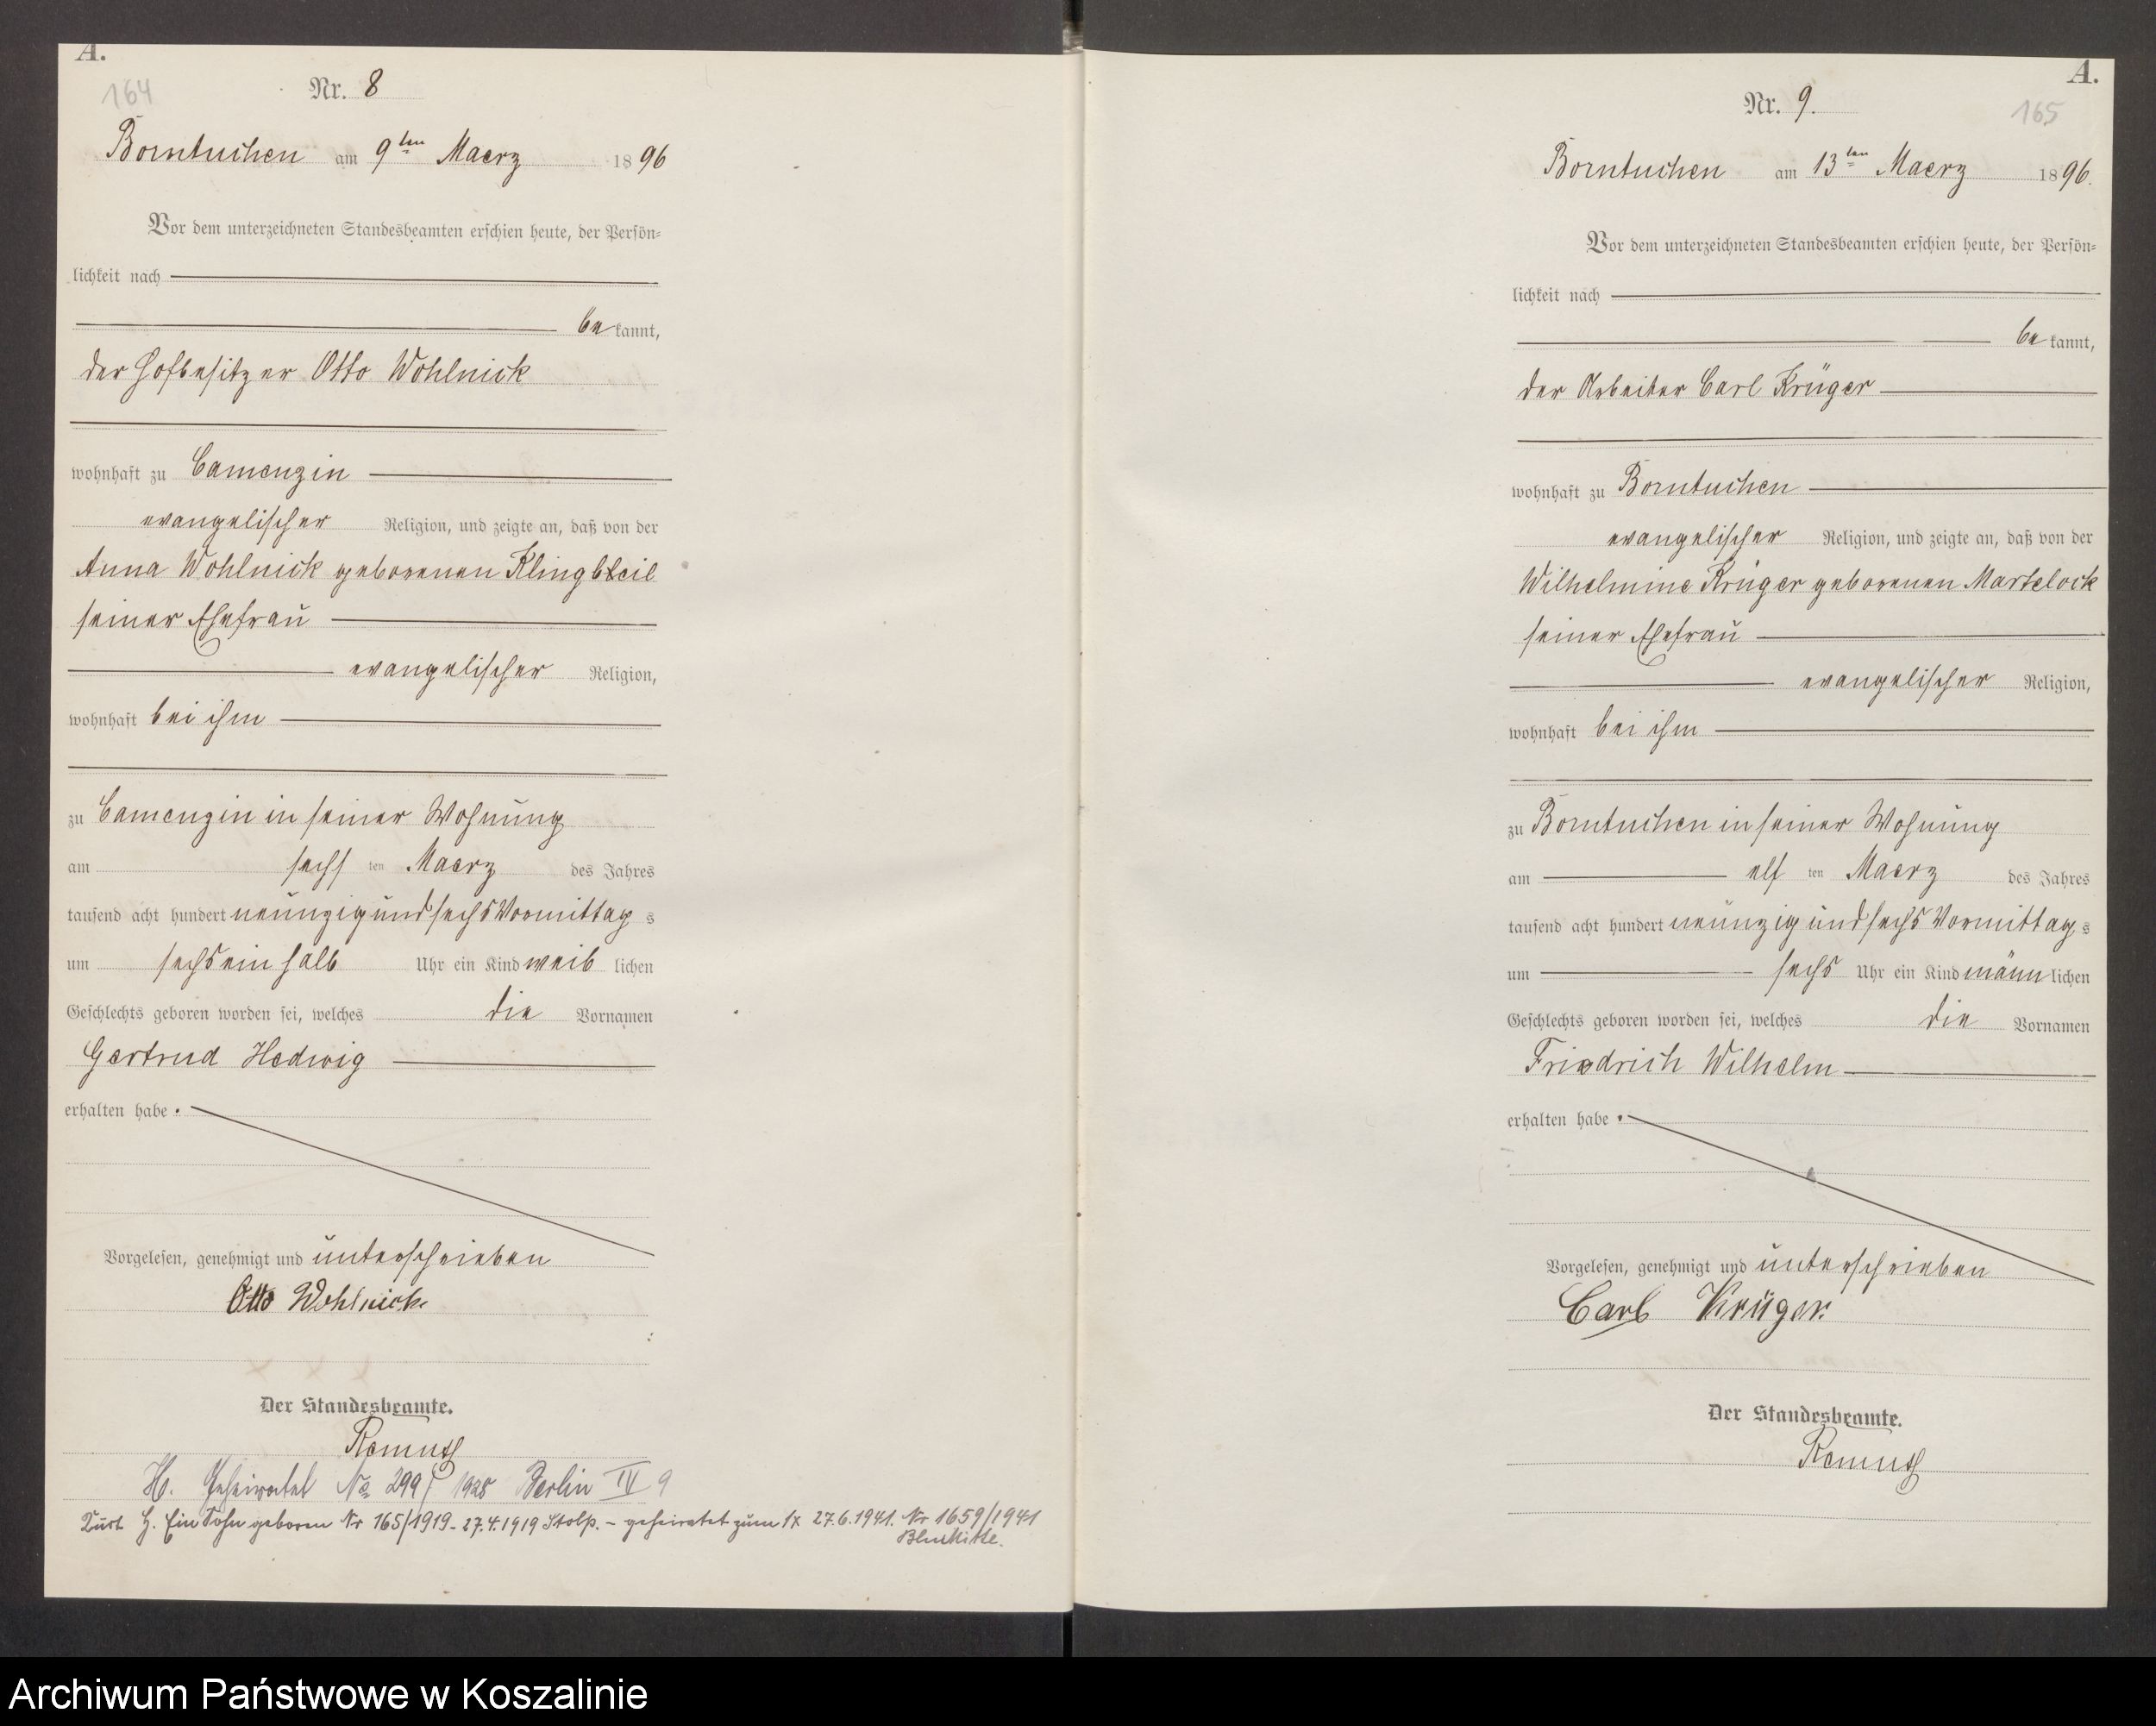 A.
164
Nr. 8
Borntuchen am 9ten Maerz 1896
Vor dem unterzeichneten Standesbeamten erschien heute, der Persön-
lichkeit nach
bekannt,
der Hofbesitzer Otto Wohlnick
wohnhaft zu Camenzin
evangelischer Religion, und zeigte an, daß von der
Anna Wohlnick geborenen Klingbeil
seiner Ehefrau
evangelischer Religion,
wohnhaft bei ihm
zu Camenzin in seiner Wohnung
am sechs ten Maerz des Jahres
tausend acht hundert neunzig und sechs Vormittags
um sechs ein halb Uhr ein Kind weiblichen
Geschlechts geboren worden sei, welches die Vornamen
Gertrud Hedwig
erhalten habe.
Vorgelesen, genehmigt und unterschrieben
Otto Wohlnick
Der Standesbeamte.
H. Geheiratet No 299/1928 Berlin IV 9
H. Ein Sohn geboren Nr 165/1919 - 27.4.1919 Stolp. - geheiratet zum 1x 27.6.1941. Nr 1659/1941
A.
165
Nr. 9.
Borntuchen am 13ten Maerz 1896.
Vor dem unterzeichneten Standesbeamten erschien heute, der Persön-
lichkeit nach
bekannt,
der Arbeiter Carl Krüger
wohnhaft zu Borntuchen
evangelischer Religion, und zeigte an, daß von der
Wilhelmine Krüger geborenen Martelock
seiner Ehefrau
evangelischer Religion,
wohnhaft bei ihm
zu Borntuchen in seiner Wohnung
am elf ten Maerz des Jahres
tausend acht hundert neunzig und sechs Vormittags
um sechs Uhr ein Kind männlichen
Geschlechts geboren worden sei, welches die Vornamen
Friedrich Wilhelm
erhalten habe.
Vorgelesen, genehmigt und unterschrieben
Carl Krüger.
Der Standesbeamte.
Archiwum Państwowe w Koszalinie